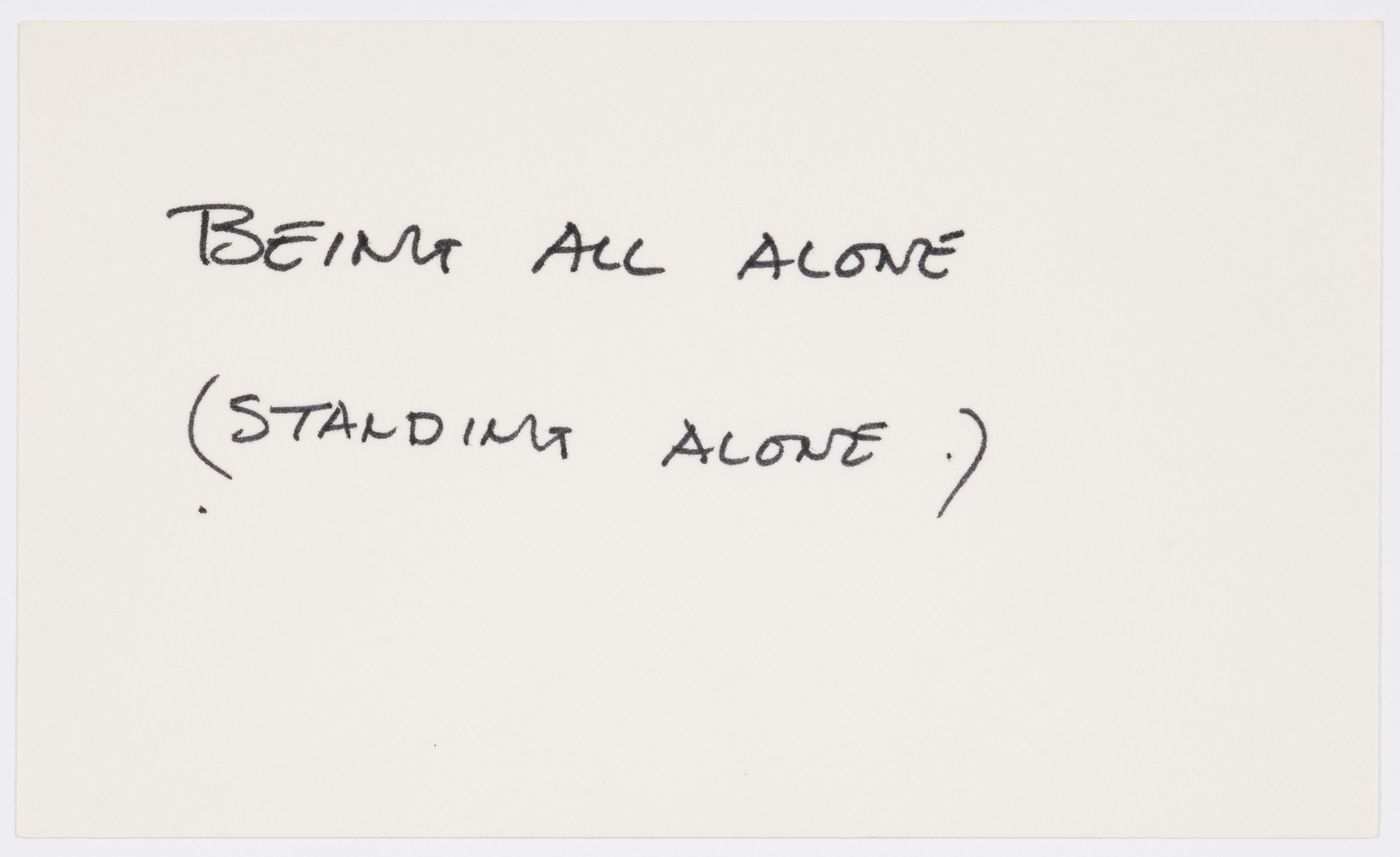 BEING ALL ALONE
(STANDING ALONE .)